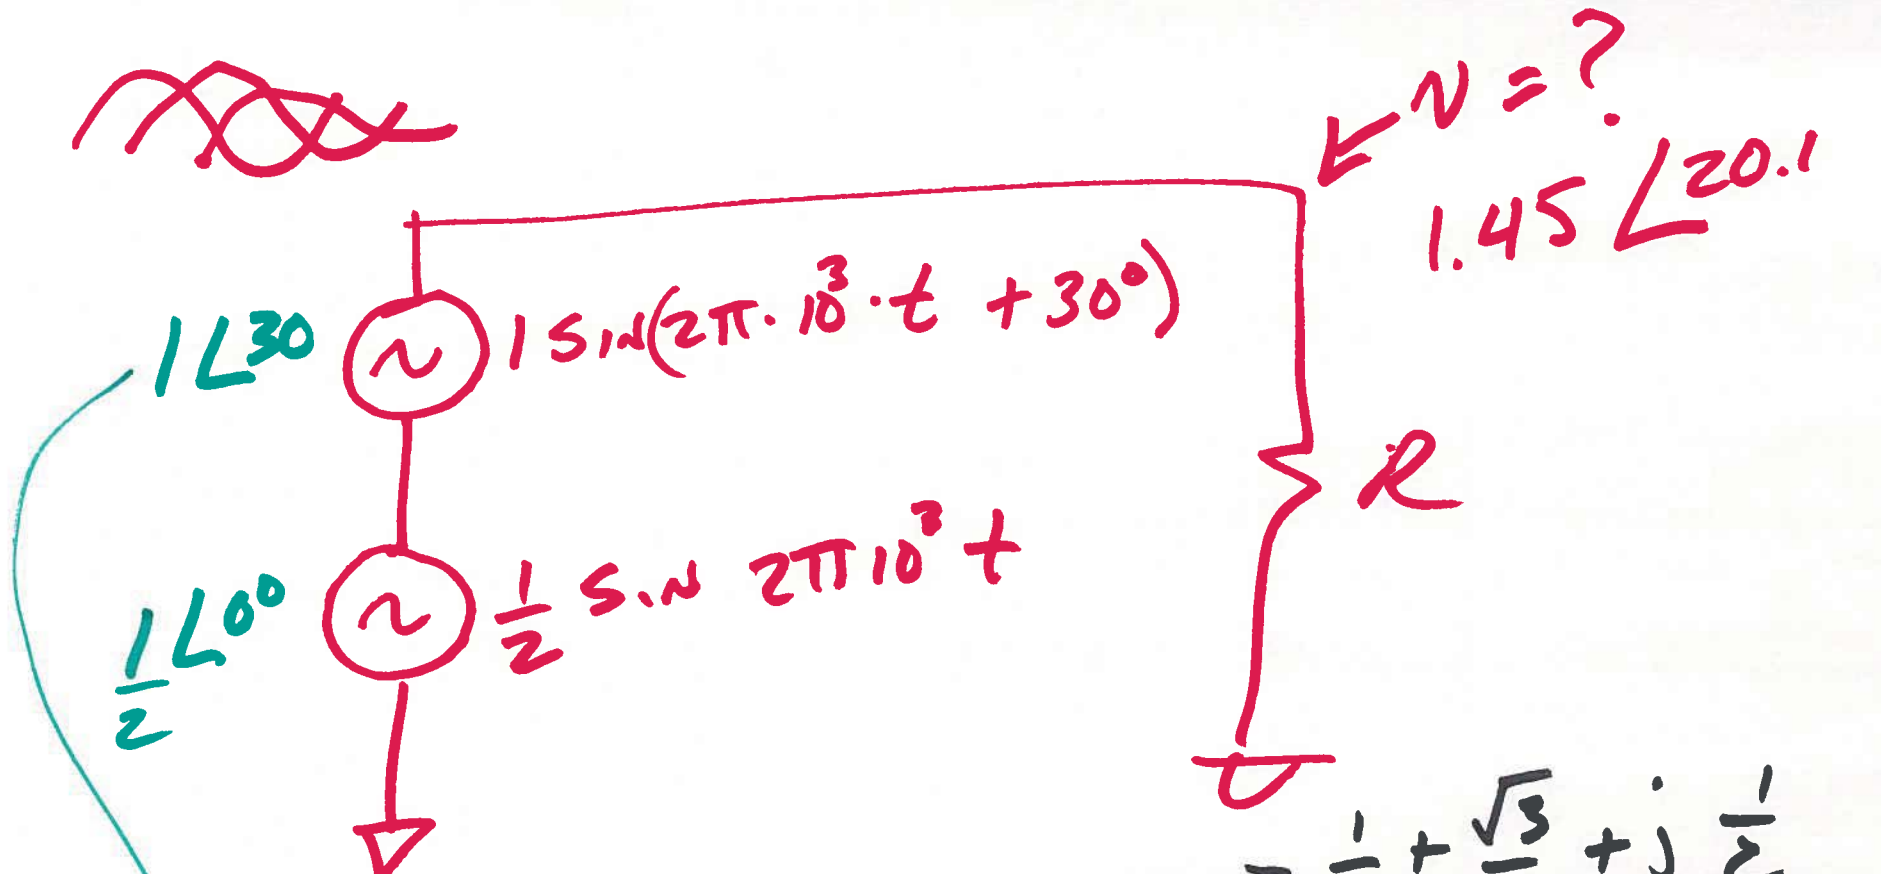 v = ?
1.45 ∠20.1
1∠30
1 sin(2π·10³·t +30°)
R
½∠0°
½ sin 2π10³ t
= ½ + √3/2 + j ½